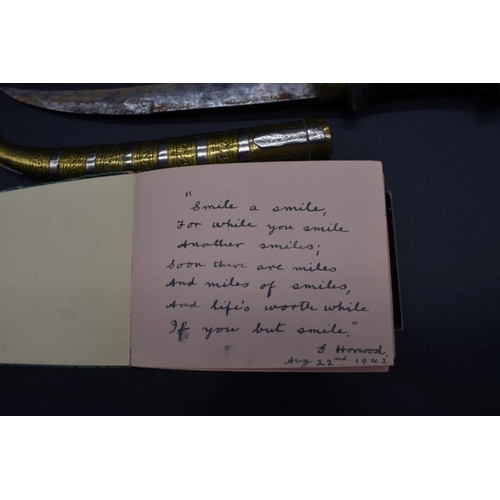 "Smile a smile,
For while you smile
Another smiles;
Soon there are miles
And miles of smiles,
And life's worth while
If you but smile."
E Horwood.
Aug 22nd. 1942